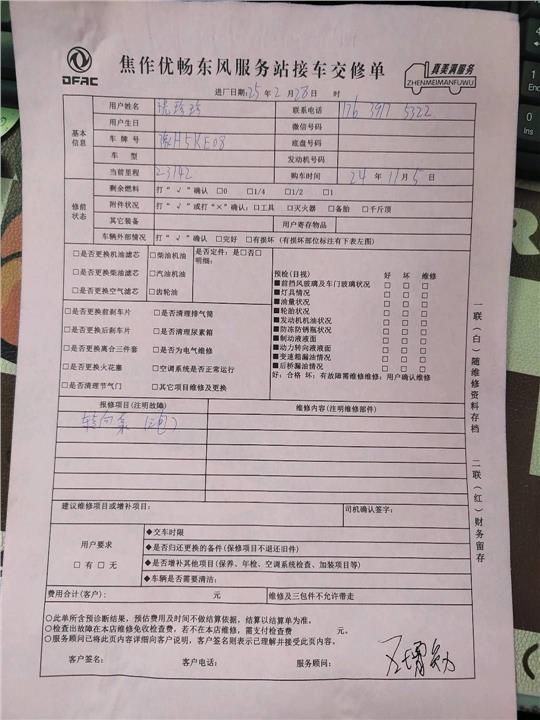 DFAC
焦作优畅东风服务站接车交修单
真美满服务
ZHENMEIMANFUWU
进厂日期:25年2月28日 时
基本信息
用户姓名 联系电话 176 3917 5322
用户生日 微信号码
车牌号 豫H5KE08 底盘号码
车型 发动机号码
当前里程 23142 购车时间 24年11月5日
修前状态
剩余燃料 打"√"确认 □0 □1/4 □1/2 □1
附件状况 打"√"或打"×"确认:□工具 □灭火器 □备胎 □千斤顶
其它装备 用户寄存物品
车辆外部情况 打"√"确认 □完好 □有损坏(有损坏部位标注有下表左图)
□是否更换机油滤芯 □柴油机油 是否定件:是□否□
明细:
□是否更换柴油滤芯 □汽油机油
□是否更换空气滤芯 □齿轮油
□是否更换前刹车片 □是否清理排气筒
□是否更换后刹车片 □是否清理尿素箱
□是否更换离合三件套 □是否为电气维修
□是否更换火花塞 □空调系统是否正常运行
□是否清理节气门 □其它项目维修及更换
预检(目视) 好 坏 维修
■前挡风玻璃及车门玻璃状况 □ □ □
■灯具情况 □ □ □
■油量状况 □ □ □
■轮胎状况 □ □ □
■发动机机油状况 □ □ □
■防冻防锈瓶状况 □ □ □
■制动液液面 □ □ □
■动力转向液液面 □ □ □
■变速箱漏油情况 □ □ □
■后桥漏油情况 □ □ □
好:合格 坏:有故障需维修维修:用户确认维修
报修项目(注明故障) 维修内容(注明维修部件)
转向泵(电)
建议维修项目或增补项目: 司机确认签字:
用户要求
□有 □无
◆交车时限
◆是否归还更换的备件(保修项目不退还旧件)
◆是否增补其他项目(保养、年检、空调系统检查、加装项目等)
◆车辆是否需要清洁:
费用合计(客户): 元 维修及三包件不允许带走
○此单所含预诊断结果,预估费用及时间不做结算依据,结算以结算单为准。
○检查出故障在本店维修免收检查费,若不在本店维修,需支付检查费 元。
○服务顾问已将此页内容详细向客户说明,客户签名则表示已理解并接受此页内容。
客户签名: 客户电话: 服务顾问:
一联(白)随维修资料存档
二联(红)财务留存